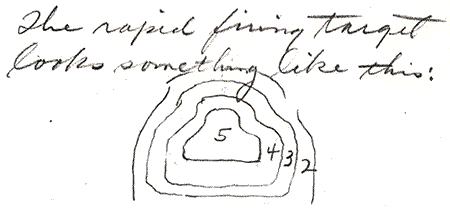 The rapid firing target
looks something like this:
5 4 3 2